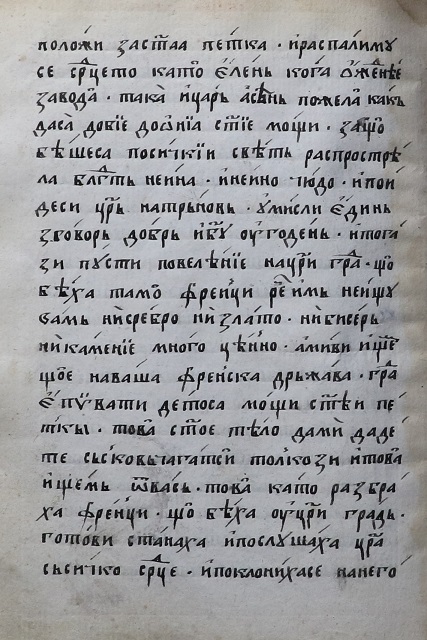 положи застаа петка · ираспалиму
се срⷣцето като еленъ кога ѹженѣе
завода · така ицарь асѣнь пожела какъ
даса добїе досанїа стїе мощи · защо
бѣшеса посичкїи свѣтъ распрострѣ
ла блгⷣтъ нейна · инейно чюдо · ипои
деси црь натрьновь · ѹмисли единь
зговорь добрь ибгѹ оугодень · итога
зи пусти повелѣнїе нацриⷢ граⷣ · що
бѣха тамо френци рече имъ неищу
ѕамъ нисребро низлато · нибисерь
никаменїе много цѣнно · амиви ище
щое наваша френска дрьжава · граⷣ
епїѵвати детоса мощи стѣи пе
тки · това стое тѣло дами даде
те сьсковьчагатси толкози итова
ищемь ѿвась · това като разбра
ха френци · що бѣха оуцри градъ ·
готови станаха ипослушаха цра
сьсичко срⷣце · ипоклонихасе нанего